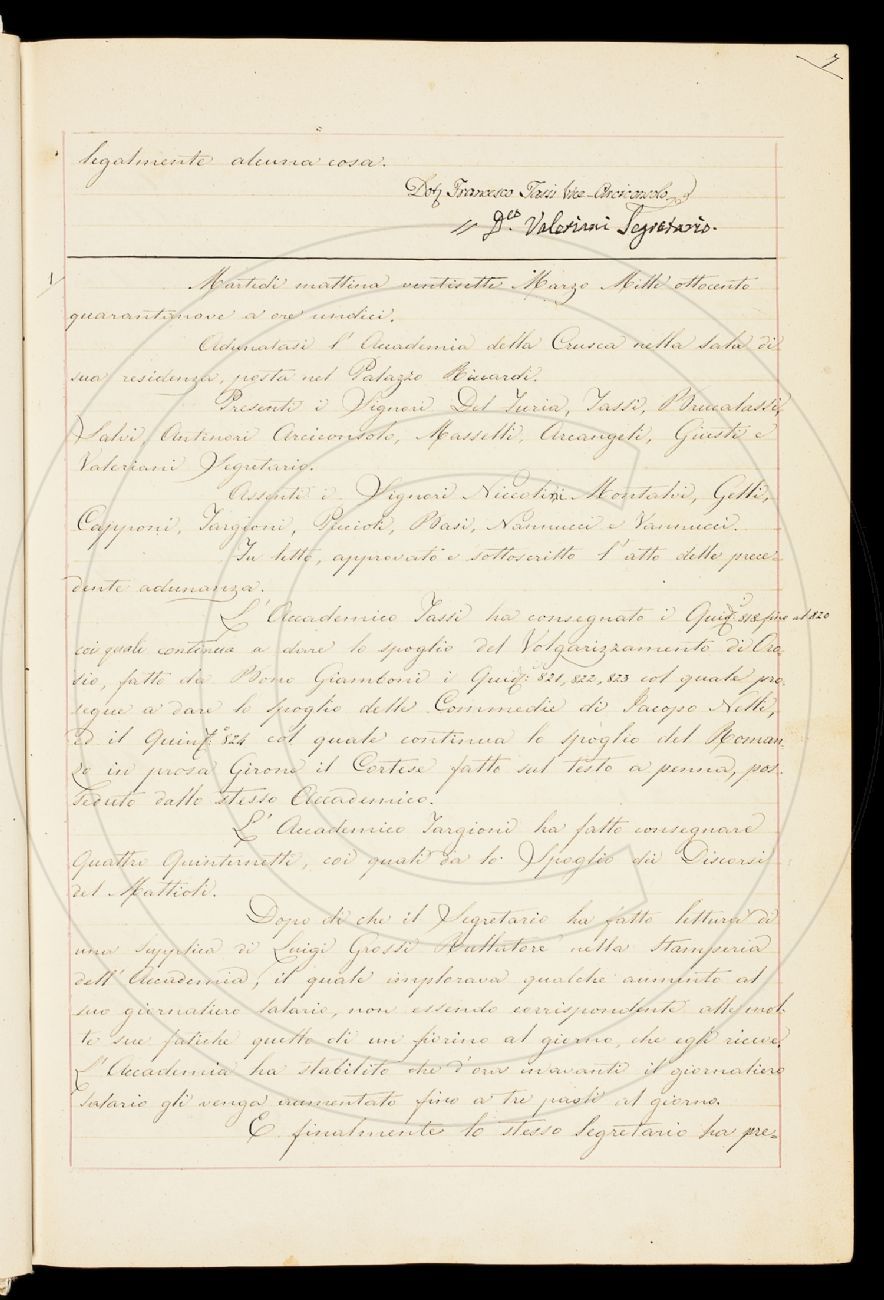 7
legalmente alcuna cosa.
Dott. Francesco Tassi Vice-Arciconsolo
D.co Valeriani Segretario.
Martedì mattina ventisette Marzo Mille ottocento
quarantanove a ore undici.
Adunatasi l'Accademia della Crusca nella sala di
sua residenza, posta nel Palazzo Riccardi.
Presenti i Signori Del Furia, Tassi, Brucalassi,
Salvi, Antinori Arciconsolo, Masselli, Arcangeli, Giusti e
Valeriani Segretario.
Assenti i Signori Niccolini, Montalvi, Gelli,
Capponi, Targioni, Puccioli, Basi, Nannucci e Vannucci.
Fu letto, approvato e sottoscritto l'atto della prece-
dente adunanza.
L'Accademico Tassi ha consegnato i Quint. 818 fino al 820
coi quali continua a dare lo spoglio del Volgarizzamento di Oro-
sio, fatto da Bono Giamboni i Quint. 821, 822, 823 col quale pro-
segue a dare lo spoglio delle Commedie di Jacopo Nelli,
ed il Quint.o 824 col quale continua lo spoglio del Roman-
zo in prosa Girone il Cortese fatto sul testo a penna, pos-
seduto dallo stesso Accademico.
L'Accademico Targioni ha fatto consegnare
quattro Quinternetti, coi quali dà lo Spoglio dei Discorsi
del Mattioli.
Dopo di che il Segretario ha fatto lettura di
una supplica di Luigi Grossi Battitore nella stamperia
dell'Accademia, il quale implorava qualche aumento al
suo giornaliero salario, non essendo corrispondente alle mol-
te sue fatiche quello di un fiorino al giorno, che egli riceve.
L'Accademia ha stabilito che d'ora inavanti il giornaliero
salario gli venga aumentato fino a tre paoli al giorno.
E finalmente lo stesso Segretario ha pre-